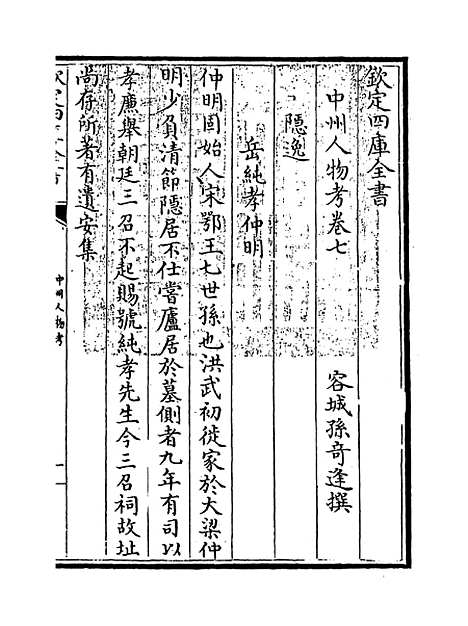 欽定四庫全書
中州人物考卷七
容城孫奇逢撰
隱逸
岳純孝仲明
仲明固始人宋鄂王七世孫也洪武初徙家於大梁仲
明少負清節隱居不仕嘗廬居於墓側者九年有司以
孝廉舉朝廷三召不起賜號純孝先生今三召祠故址
尚存所著有遺安集
欽定四庫全書
中州人物考
一